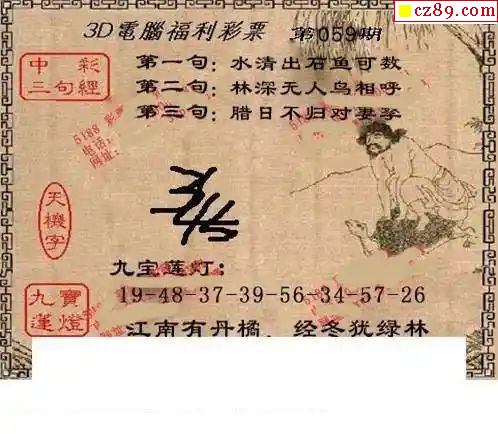 cz89.com
3D電腦福利彩票 第059期
中彩
三句經
第一句：水清出石鱼可数
第二句：林深无人鸟相呼
第三句：腊日不归对妻孥
5188
电话：
网址：
天機字
九宝莲灯：
九寶蓮燈
19-48-37-39-56-34-57-26
江南有丹橘，经冬犹绿林